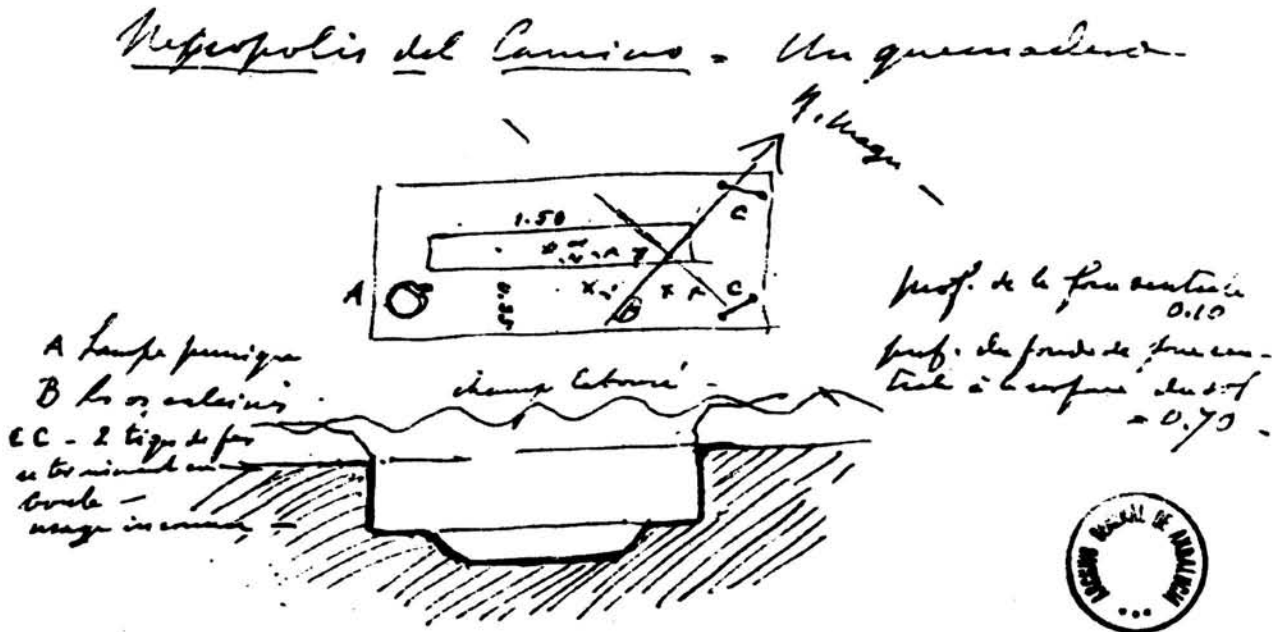 Necropolis del Camino = Un quemadero
N. magn
1.50
A
C
C
B
prof. de la fosse centrale
0.10
prof. du fond de fosse cen-
trale à la surface du sol
= 0.70
champ labouré
A Lampe punique
B les os calcinés
CC - 2 tiges de fer
se terminant en
boucle -
usage inconnu -
ARCHIVO GENERAL DE ANDALUCIA